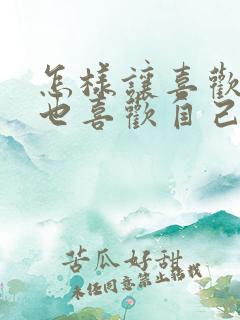 怎樣讓喜歡
也喜歡自己
苦瓜好甜
未经同意禁止转载